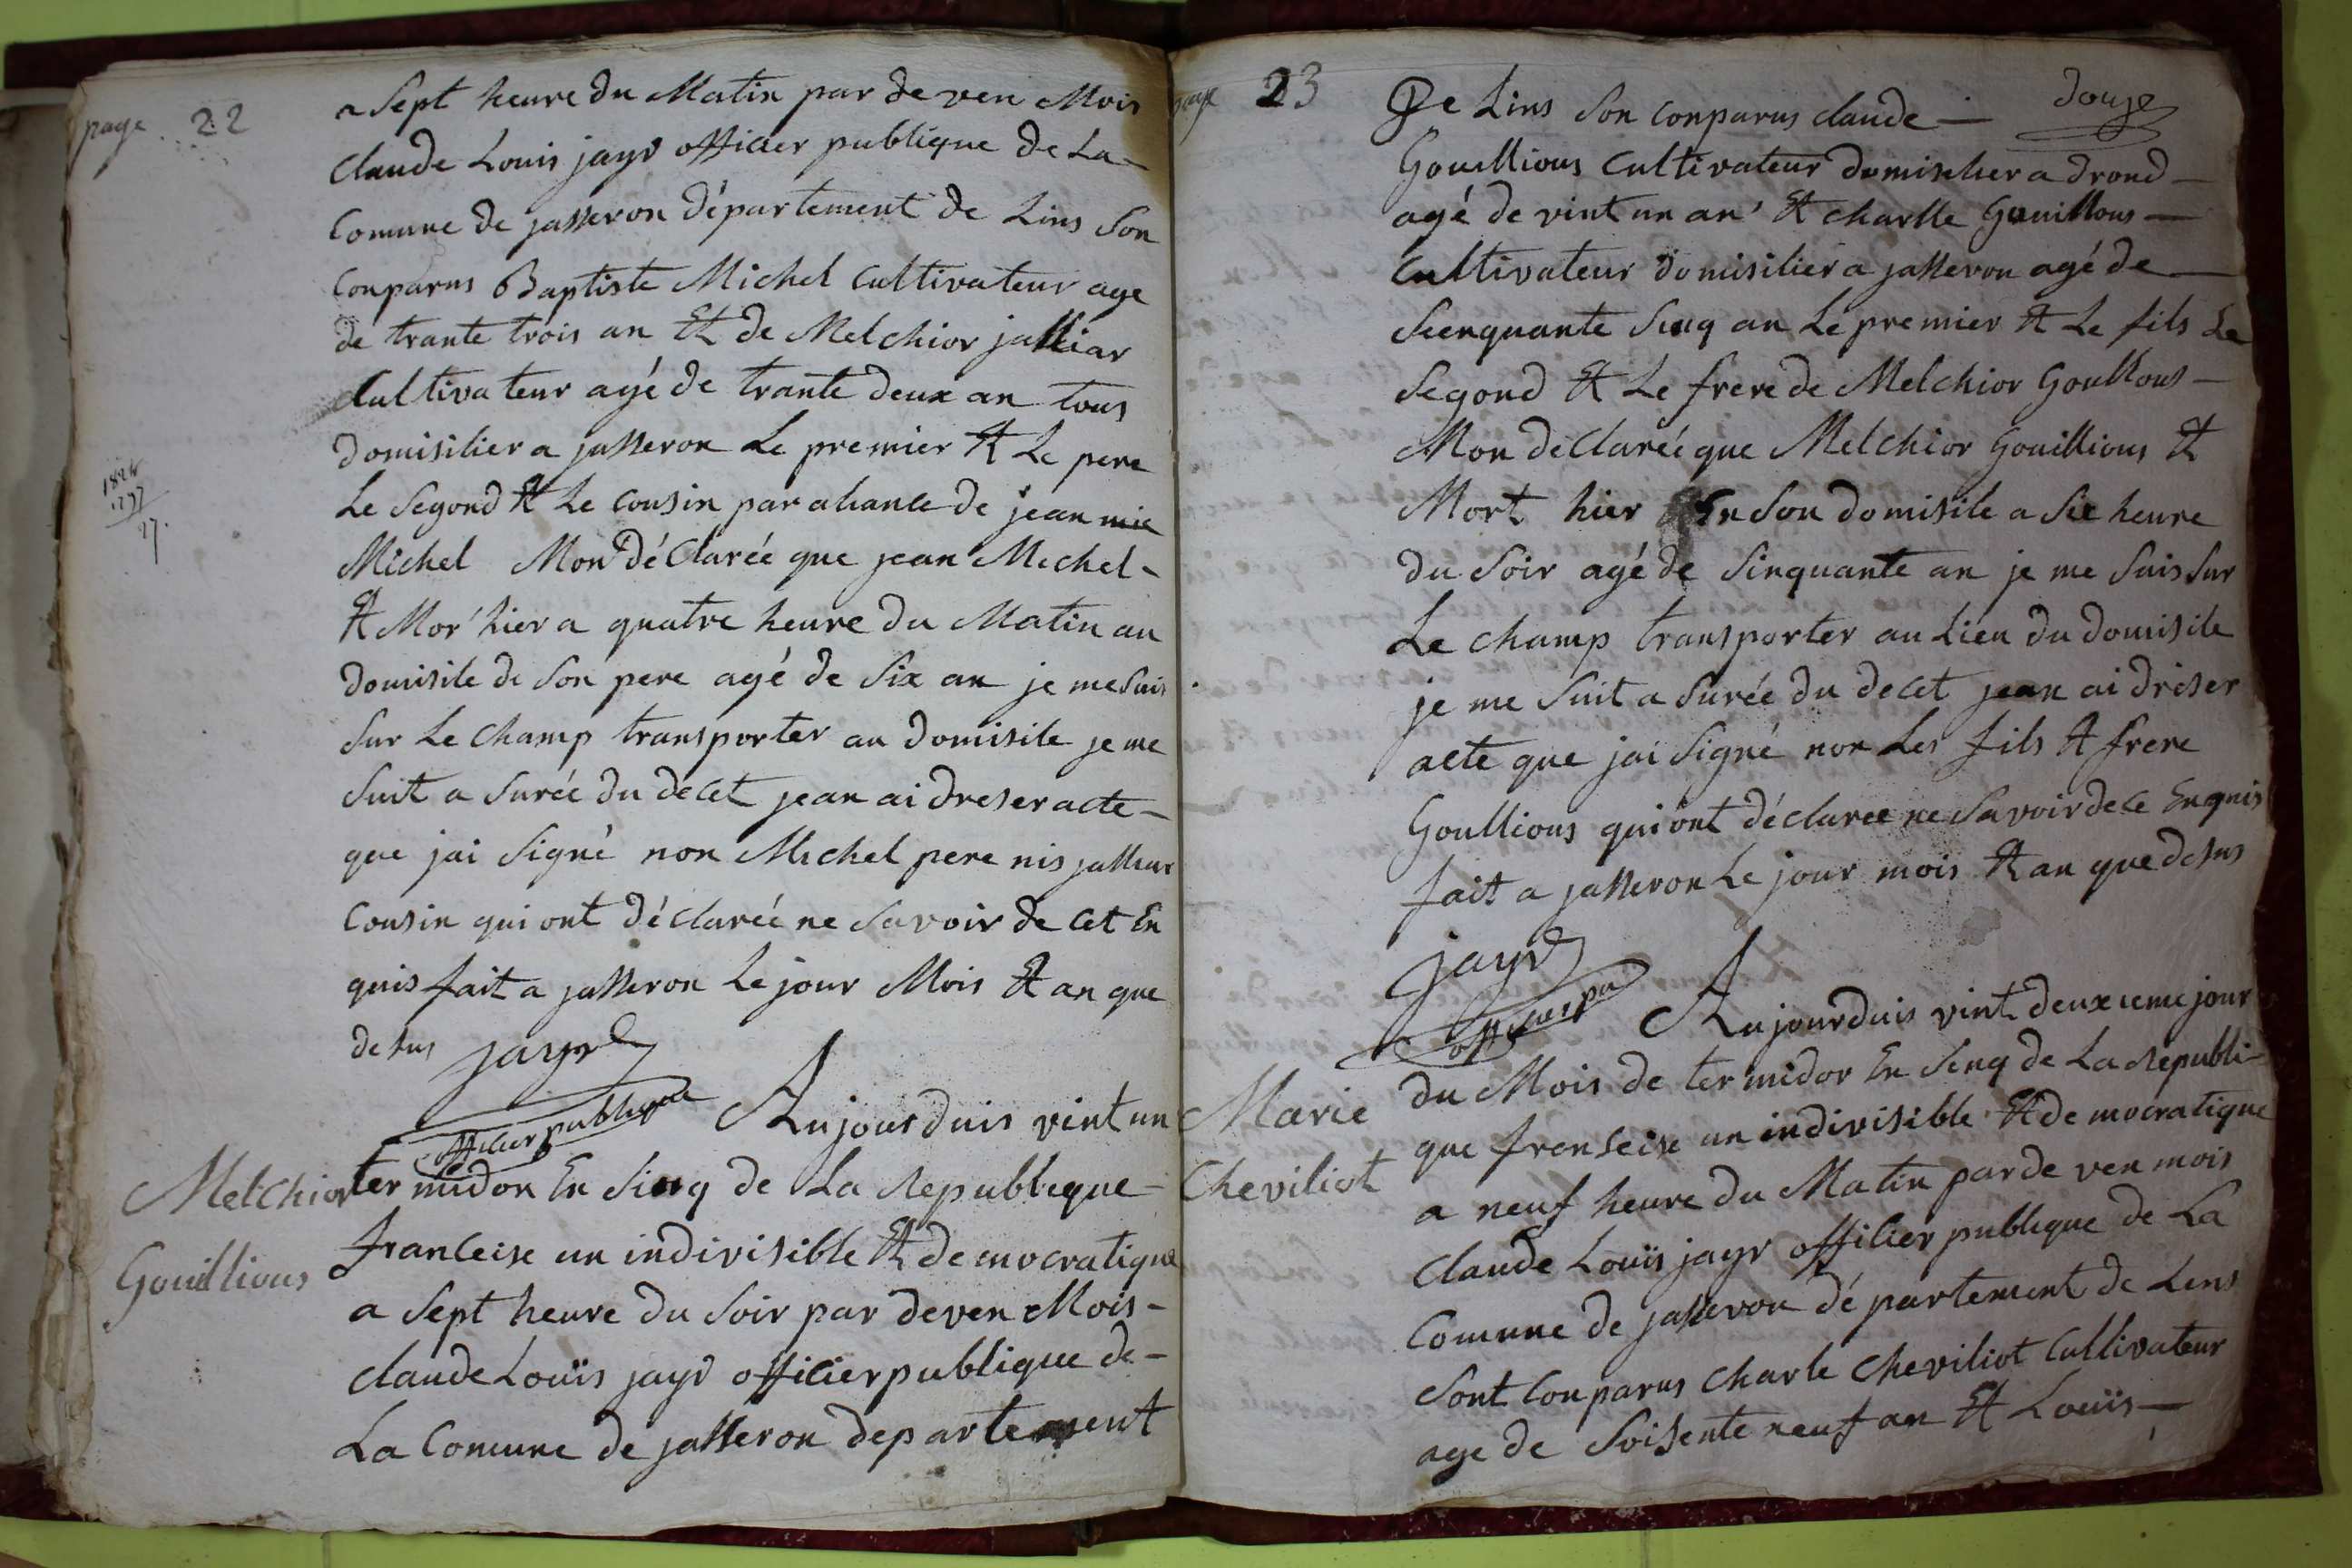 page 22
a Sept heure du Matin par de ven Mois
Claude Louis jayr officier publique de La
Comune de jasseron département de Lins Son
Conparus Baptiste Michel Cultivateur age
de trante trois an Et de Melchior jalliar
Cultivateur agé de trante deux an tous
domisilier a jasseron Le premier Et Le pere
Le Segond Et Le Cousin par aliance de jean mie
Michel Mon déClarée que jean Michel -
Et Mor' hier a quatre heure du Matin au
domisile de Son pere agé de Six an je me suis
Sur Le Champ transporter au domisile je me
Suit a Surée du decet jean ai dreser acte -
que jai Signé non Michel pere nis
Cousin qui ont déclarée ne Savoir de Cet En
quis fait a jasseron Le jour Mois Et an que
desus jayr
officier publique
1824
1797
27.
Aujourduis vint un
Melchior
Gouillious
termidor En Sinq de La Republique -
franceise un indivisible Et de mocratique
a Sept heure du Soir par deven Mois -
Claude Louïs jayr officier publique de -
La Comune de jasseron departement
page 23
douze
De Lins Son Conparus Claude —
Gouillious Cultivateur domisilier a drond —
agé de vint un an' Et Charlle Gouillous —
Cultivateur domisilier a jasseron agé de —
Sienquante Sinq an Le premier Et Le fils Le
Segond Et Le frere de Melchior Goullous —
Mon déClarée que Melchior Gouillious Et
Mort hier En Son domisile a Sie heure
du Soir agé de Sinquante an je me Suis Sur
Le Champ transporter au Lieu du domisile
je me Suit a Surée du decet jean ai driser
acte que jai Signé non Les fils Et frere
Goullious qui ont déclaree ne Savoir de Ce Enquis
fait a jasseron Le jour mois Et an que desus
jayr
Aujourduis vint deuxieme jour
Marie
Cheviliot
du Mois de termidor En Sinq de La Republi-
que franseise un indivisible Et de mocratique
a neuf heure du Matin par de ven mois
Claude Louïs jayr officier publique de La
Comune de jasseron dé partement de Lens
Sont Conparus Charle Cheviliot Cultivateur
age de Soisente neuf an Et Louïs —